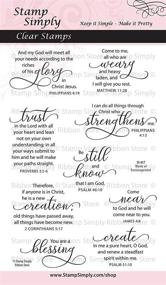 Stamp Simply
Keep it Simple - Make it Pretty
Clear Stamps
And my God will meet all
your needs according to the
riches of
his glory in
Christ Jesus.
PHILIPPIANS 4:19
Come to me,
all who are
weary
and heavy
laden, and
I will give you rest.
MATTHEW 11:28
trust
in the LORD with all
your heart and lean
not on your own
understanding; in all
your ways submit to
him and he will make
your paths straight.
PROVERBS 3:5-6
I can do all things through
Christ who
strengthens
me.
PHILIPPIANS
4:13
Be
still
and
know
that I am God.
PSALM 46:10
Therefore, if
anyone is in Christ,
he is a new
creation;
old things have passed away;
all things have become new.
2 CORINTHIANS 5:17
Come
near
to God and he will
come near to you.
JAMES 4:8
You are a
blessing
create
in me a pure heart, O God,
and renew a steadfast
spirit within me.
PSALM 51:10
www.StampSimply.com/shop